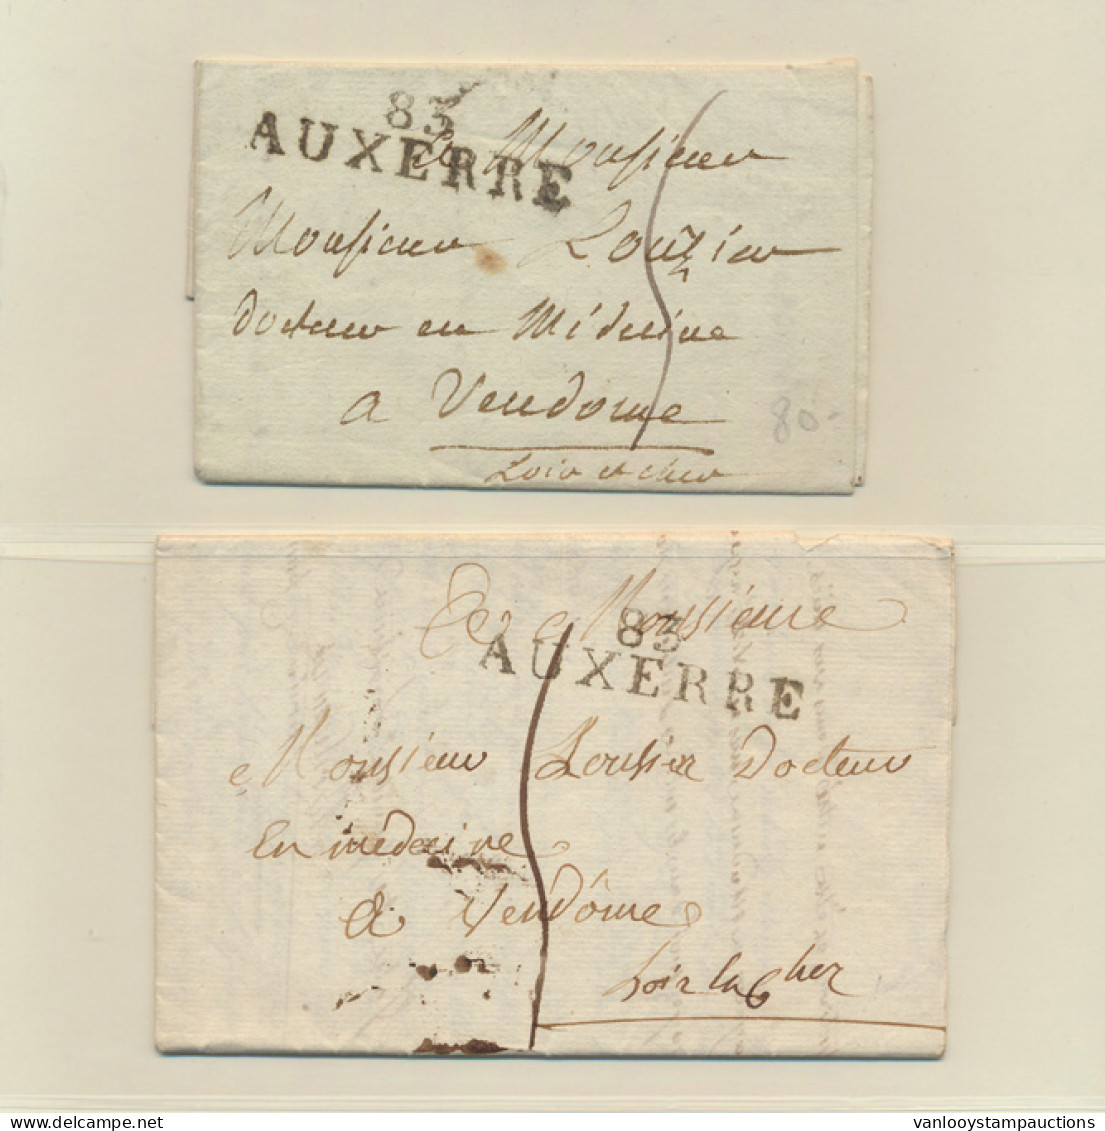 83
AUXERRE
a Monsieur
Monsieur Louzier
docteur en Médecine
a Vendome
Loir et cher
80-
83
AUXERRE
Monsieur
Monsieur Docteur
En médecine
a Vendôme
Cher
delcampe.net
vanlooystampauctions